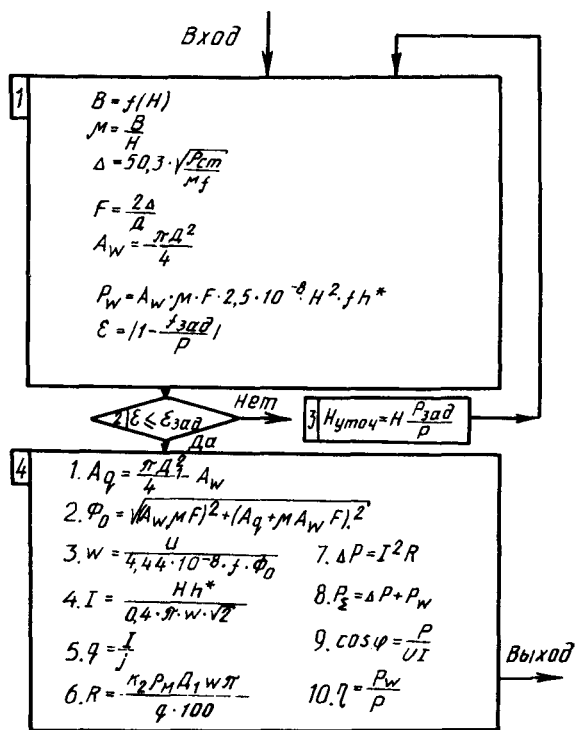 Вход
1
B = f(H)
μ = B/H
Δ = 50,3 · √(ρст/μf)
F = 2Δ/Д
A_w = πД²/4
P_w = A_w · μ · F · 2,5 · 10⁻⁸ · H² · f h*
ε = |1 - fзад/P|
2 ε ≤ εзад
Нет
3 Hуточ = H Pзад/P
Да
4
1. A_q = πД₁²/4 - A_w
2. Φ₀ = √((A_w μF)² + (A_q + μ A_w F)²)
3. w = U/(4,44 · 10⁻⁸ · f · Φ₀)
4. I = H h*/(0,4 · π · w · √2)
5. q = I/j
6. R = K₂ ρ_м Д₁ w π/(q · 100)
7. ΔP = I² R
8. P_Σ = ΔP + P_w
9. cos φ = P/UI
10. η = P_w/P
Выход